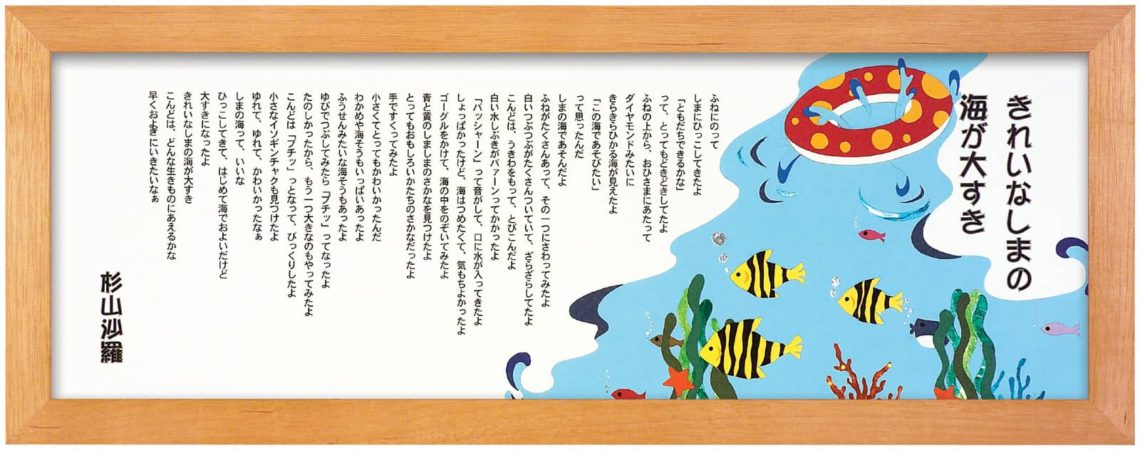 きれいなしまの
海が大すき
ふねにのって
しまにひっこしてきたよ
「ともだちできるかな」
って、とってもどきどきしてたよ
ふねの上から、おひさまにあたって
ダイヤモンドみたいに
きらきらひかる海が見えたよ
「この海であそびたい」
って思ったんだ
しまの海であそんだよ
ふねがたくさんあって、その一つにさわってみたよ
白いつぶつぶがたくさんついていて、ざらざらしてたよ
こんどは、うきわをもって、とびこんだよ
白い水しぶきがバァーンってかかったよ
「バッシャーン」って音がして、口に水が入ってきたよ
しょっぱかったけど、海はつめたくて、気もちよかったよ
ゴーグルをかけて、海の中をのぞいてみたよ
青と黄のしましまのさかなを見つけたよ
とってもおもしろいかたちのさかなだったよ
手ですくってみたよ
小さくてとってもかわいかったんだ
わかめや海そうもいっぱいあったよ
ふうせんみたいな海そうもあったよ
ゆびでつぶしてみたら「プチッ」ってなったよ
たのしかったから、もう一つ大きなのもやってみたよ
こんどは「ブチッ」っとなって、びっくりしたよ
小さなイソギンチャクも見つけたよ
ゆれて、ゆれて、かわいかったなぁ
しまの海って、いいな
ひっこしてきて、はじめて海でおよいだけど
大すきになったよ
きれいなしまの海が大すき
こんどは、どんな生きものにあえるかな
早くおよぎにいきたいなぁ
杉山沙羅